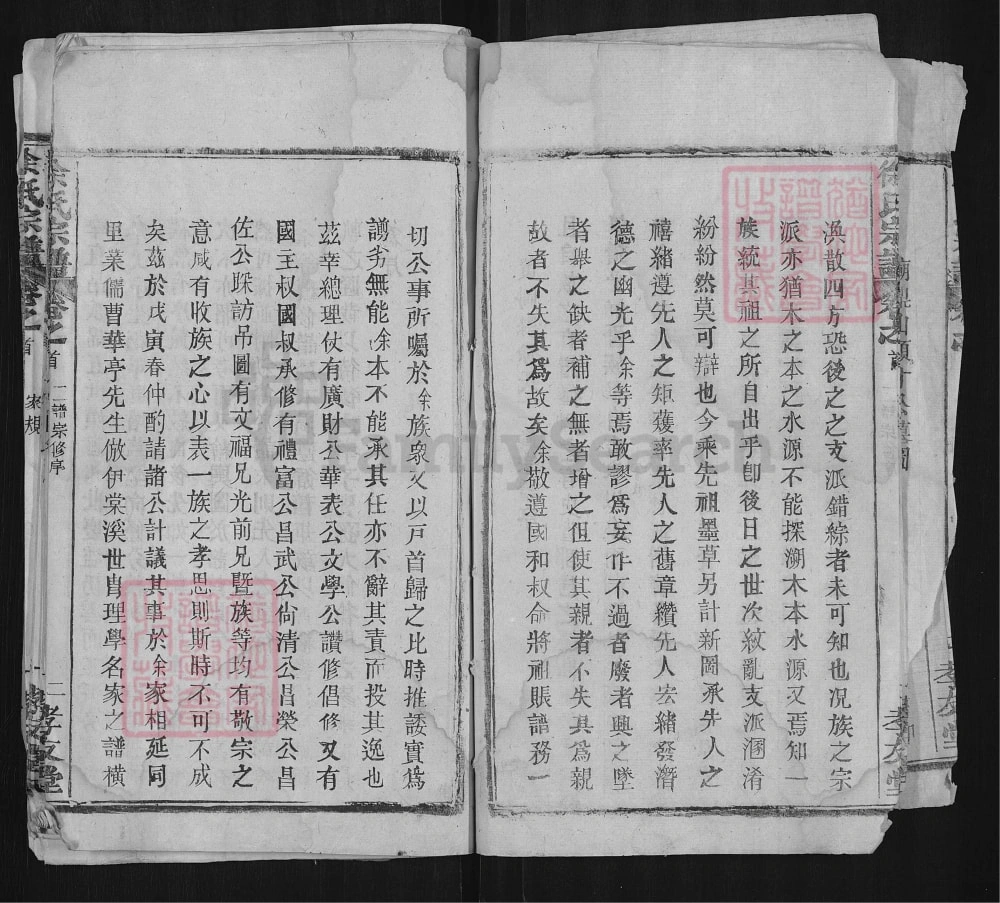 渙散四方恐後之之支派錯綜者未可知也况族之宗
派亦猶木之本之水源不能探溯木本水源又焉知一
族統其祖之所自出乎卽後日之世次紋亂支派溷淆
紛紛然莫可辯也今乘先祖墨草另計新圖承先人之
緒遵先人之矩矱率先人之舊章纘先人宏緒發潛
德之幽光乎余等焉敢謬爲妄作不過者廢者興之墜
者舉之缺者補之無者增之但使其親者不失其爲親
故者不失其爲故矣余敬遵國和叔命將祖賬譜務一
切公事所囑於余族衆又以戸首歸之比時推諉實爲
謭劣無能余本不能承其任亦不辭其責而投其逸也
茲幸總理仗有廣財公華表公文學公讚修倡修又有
國王叔國叔承修有禮富公昌武公尙清公昌榮公昌
佐公踩訪吊圖有文福兄光前兄曁族等均有敬宗之
意咸有收族之心以表一族之孝思則斯時不可不成
矣茲於戊寅春仲酌請諸公計議其事於余家相延同
里業儒曹華亭先生倣伊棠溪世胄理學名家之譜橫
徐氏宗譜
卷之首
二譜宗修序
家規
二
孝友堂